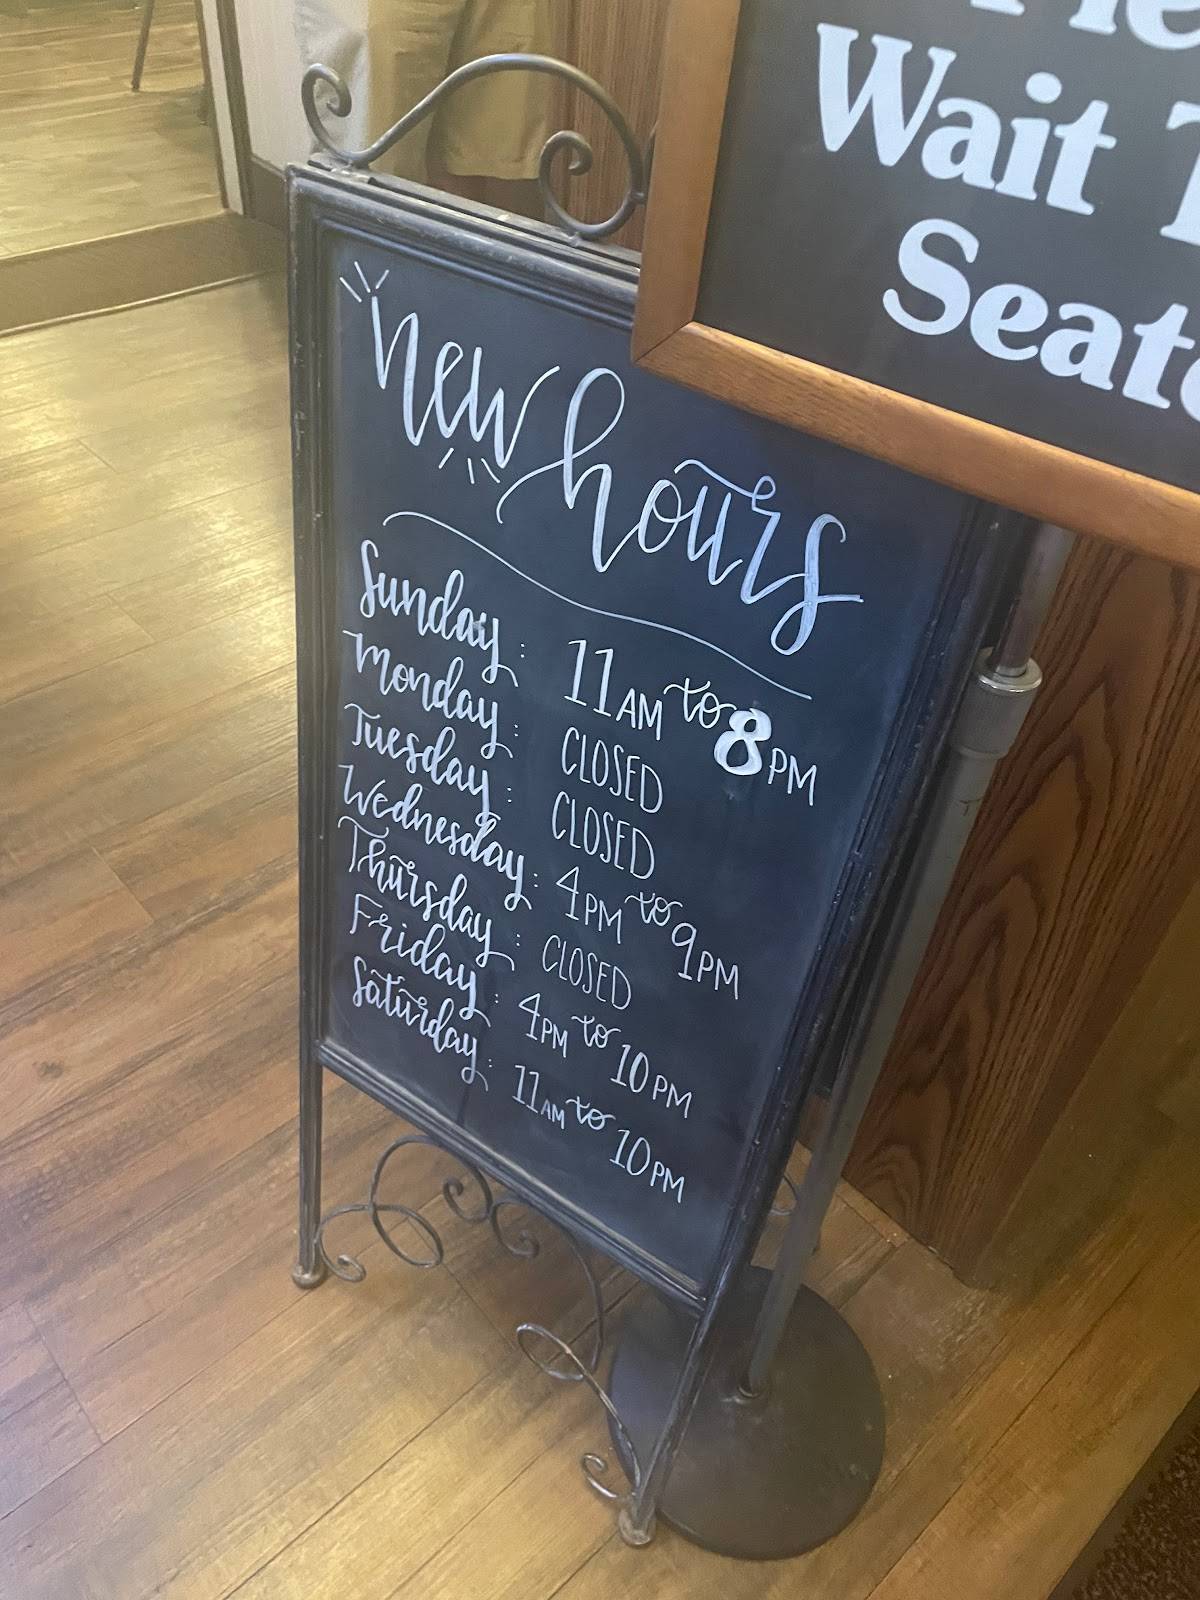 Wait
Seat
new hours
Sunday: 11AM to 8PM
Monday: CLOSED
Tuesday: CLOSED
Wednesday: 4PM to 9PM
Thursday: CLOSED
Friday: 4PM to 10PM
Saturday: 11AM to 10PM